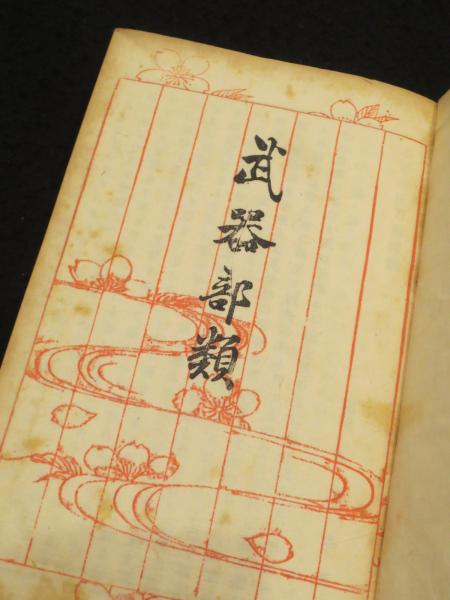 武器部類